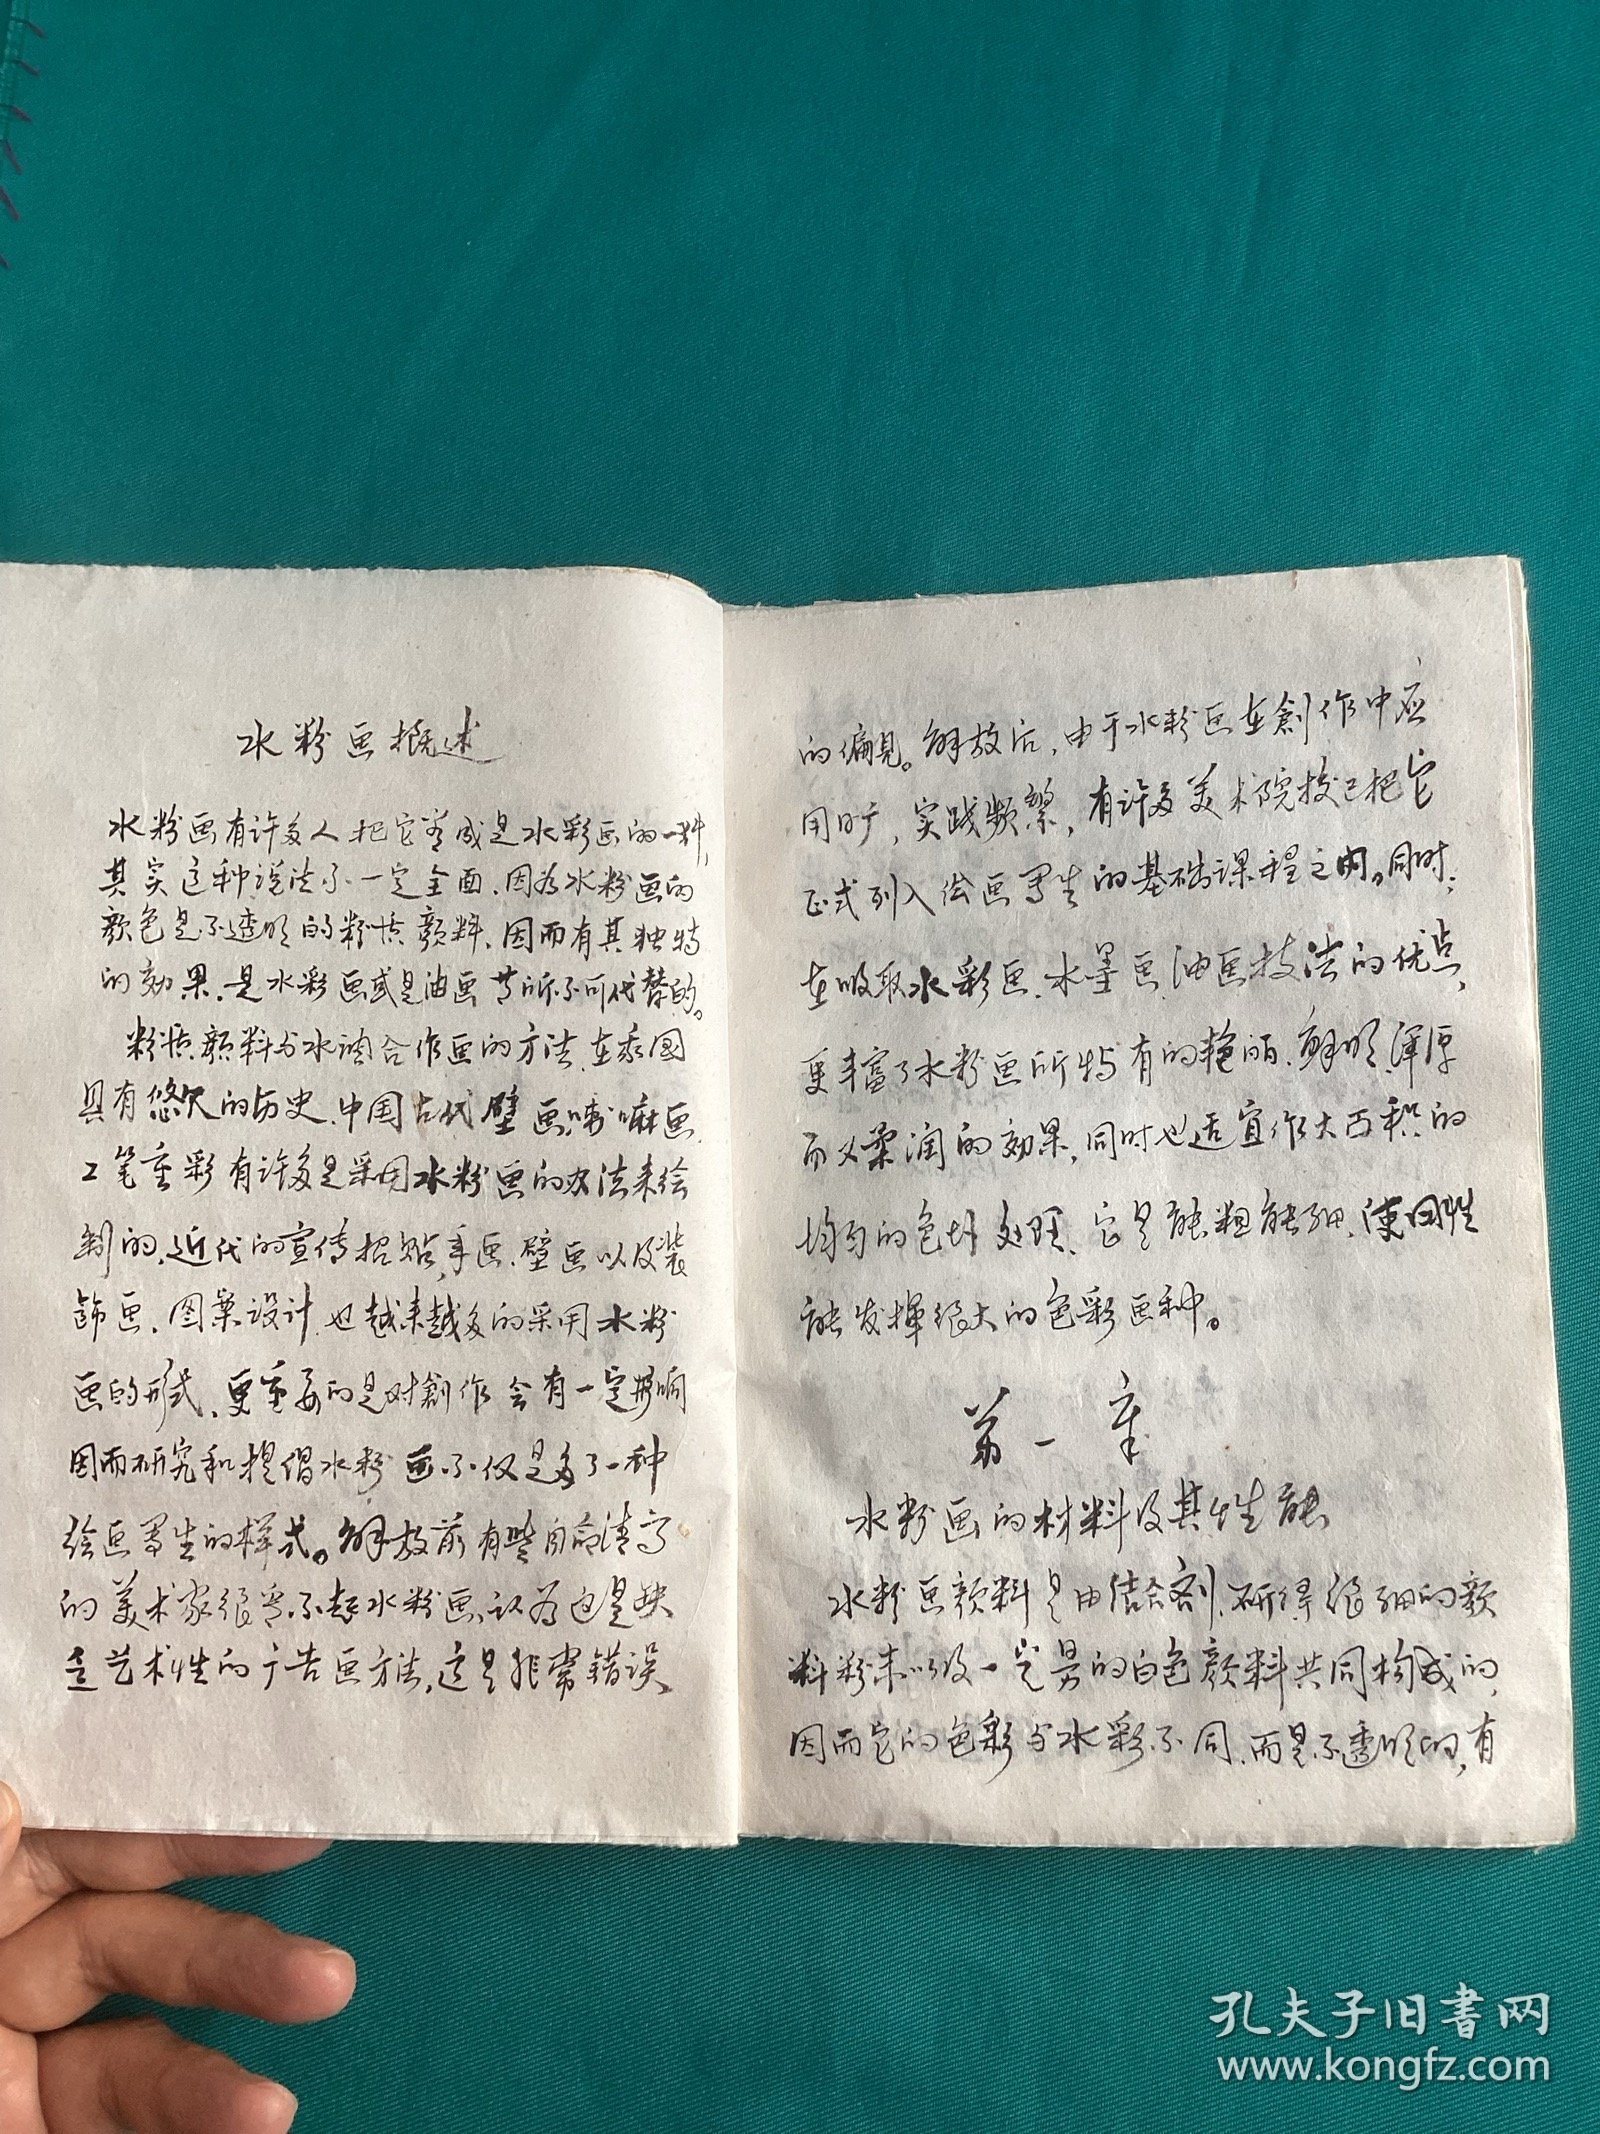 水粉画概述
水粉画有许多人把它看成是水彩画的一种,
其实这种说法不一定全面、因为水粉画的
颜色是不透明的粉质颜料、因而有其独特
的効果,是水彩画或是油画其所不可代替的。
粉质颜料与水调合作画的方法、在我国
具有悠久的历史、中国古代壁画,喇嘛画、
工笔重彩有许多是采用水粉画的办法来绘
制的、近代的宣传招贴,年画、壁画以及装
饰画、图案设计也越来越多的采用水粉
画的形式、更重要的是对創作会有一定影响
因而研究和提倡水粉画不仅是多了一种
绘画写生的样式。解放前有些自命清高
的美术家很看不起水粉画、认为这是缺
乏艺术性的广告画方法,这是非常错误
的偏見。解放后,由于水粉画在創作中应
用的广,实践频繁,有许多美术院校已把它
正式列入绘画写生的基础课程之内。同时,
在吸取水彩画、水墨画、油画技法的优点,
更丰富了水粉画所特有的艳丽、鲜明、浑厚
而又柔润的効果,同时也适宜作大面积的
均匀的色块处理、它是能粗能细、使用性
能发挥很大的色彩画种。
第一章
水粉画的材料及其性能
水粉画颜料是由结合剂、研得很细的颜
料粉末以及一定量的白色颜料共同构成的,
因而它的色彩与水彩不同、而是不透明的,有
孔夫子旧书网
www.kongfz.com